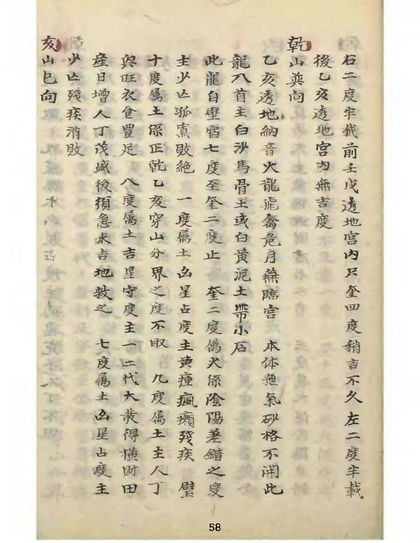 右二度半截前壬戌透地宮內只奎四度稍吉不久左二度半截
後乙亥透地宮內無吉度
乾山巽向
乙亥透地納音火龍虎禽危月燕臨宮 本体無氣砂格不開此
龍八首主白沙馬骨土或白黃泥土帶小石
此龍自壁宿七度至奎二度止 奎二度屬火係陰陽差錯之度
主少亡孤寡敗絕 一度屬土凶星占度主黃瘇瘋癩殘疾 壁
十度屬土係正乾乙亥穿山分界之度不取 九度屬土主人丁
興旺衣食豐足 八度屬土吉星守度主一二代大發得橫財田
產日增人丁茂盛後須急求吉地救之 七度屬土凶星占度主
少亡殘疾消敗
亥山巳向
58